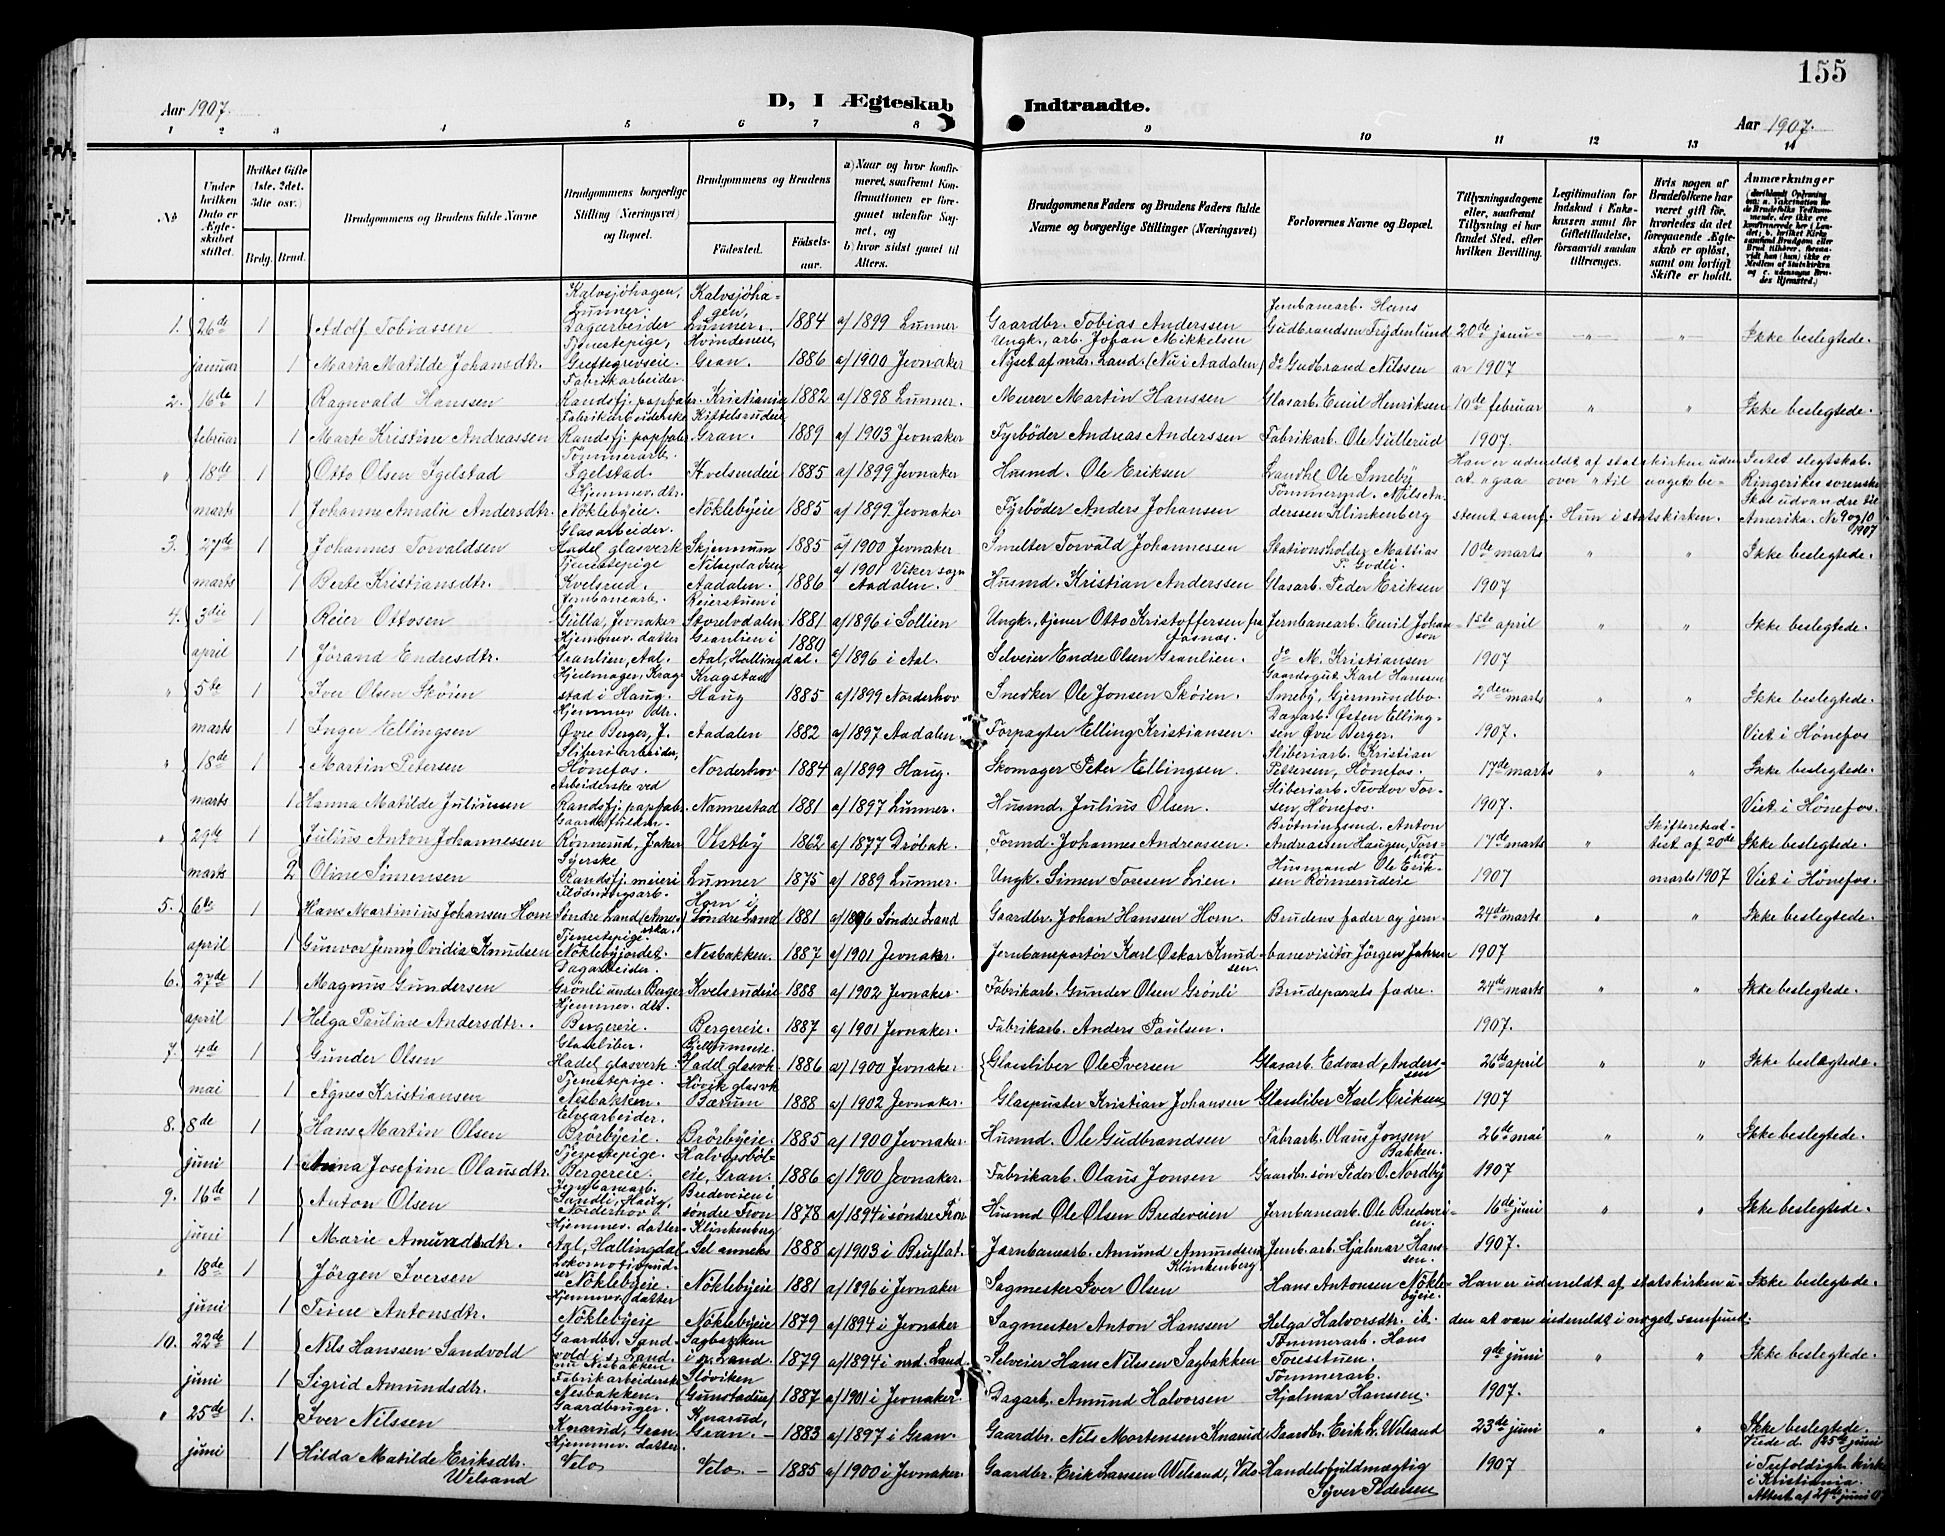 155
Aar 1907.
D, I Ægteskab Indtraadte.
Aar 1907.
1 2 3 4 5 6 7 8 9 10 11 12 13 14
No
Under hvilken Dato er Ægteskabet stiftet.
Hvilket Gifte 1ste, 2det, 3die osv.)
Brdg. Brud.
Brudgommens og Brudens fulde Navne
Brudgommens borgerlige Stilling (Næringsvei) og Bopæl.
Brudgommens og Brudens
Fødested. Fødselsaar.
a) Naar og hvor konfirmeret, saafremt Konfirmationen er foregaaet udenfor Sognet, og
b) hvor sidst gaaet til Alters.
Brudgommens Faders og Brudens Faders fulde Navne og borgerlige Stillinger (Næringsvei)
Forlovernes Navne og Bopæl.
Tillysningsdagene eller, saafremt Tillysning ei har fundet Sted, efter hvilken Bevilling.
Legitimation for Indskud i Enkekassen samt for Giftetilladelse, forsaavidt saadan tiltrænges.
Hvis nogen af Brudefolkene har været gift før, hvorledes da det foregaaende Ægteskab er opløst, samt om lovligt Skifte er holdt.
Anmærkninger
1. 26de 1 Adolf Tobiassen Kalvsjøhagen, Lunner. Dagarbeider Kalvsjøhagen, Lunner. 1884 a/ 1899 Lunner Gaardbr. Tobias Anderssen Jernbanearb. Hans Gudbrandsen Frydenlund 20de janu- " " Ikke beslegtede.
januar 1 Marta Matilde Johansdtr. Tjenestepige, Greftegrevseie. Hvindeneie Gran. 1886 a/ 1900 Jevnaker Ungk., arb. Johan Mikkelsen Nyset af nrdr. Land. (Nu i Aadalen) do Gudbrand Nilssen ar 1907
2. 16de 1 Ragnvald Hanssen Fabrikarbeider Randsfj. papfabr. Kristiania 1882 a/ 1898 Lunner. Murer Martin Hanssen Glasarb. Emil Henriksen 10de februar " " Ikke beslegtede.
februar 1 Marte Kristine Andreassen Fabrikarbeiderske Randsfj. papfab. Kittelsrudeie Gran. 1889 a/ 1903 Jevnaker Fyrbøder Andreas Anderssen Fabrikarb. Ole Gullerud 1907.
" 18de 1 Otto Olsen Igelstad Tømmerarb. Igelstad. Kvelsrudeie 1885 a/ 1899 Jevnaker Husmd. Ole Eriksen Landhl Ole Smeby Han er udmeldt af statskirken uden Intet slegtskab.
marts 1 Johanne Amalie Andersdtr. Hjemmev. dtr. Nöklebyeie. Nöklebyeie 1885 a/ 1899 Jevnaker Fyrbøder Anders Johansen Tømmermd. Nils Anderssen Klinkenberg at gaa over til noget bestemt samf. Hun i statskirken. Skal udvandre til Amerika. Nr 9 og 10 1907
3. 27de 1 Johannes Torvaldsen Glasarbeider. Hadel. glasverk Skjennum 1885 a/ 1900 Jevnaker Smelter Torvald Johannessen Stationsholder Mattias P. Godli. 10de marts " " Ikke beslegtede.
marts 1 Berte Kristiansdtr. Tjenestepige Kvelsrud. Aadalen. 1886 a/ 1901 Viker sogn Aadalen. Husmd. Kristian Anderssen Glasarb. Peder Eriksen 1907
4. 3die 1 Reier Ottosen Jernbanearb. Gulla, Jevnaker Reierstuen i Storelvdalen 1881 a/ 1896 i Sollien Ungk. tjener Otto Kristoffersen fra Fosnas. Jernbanearb. Emil Johanson 1ste april " " Ikke beslegtede.
april 1 Jørand Endresdtr. Hjemmev. datter Granlien, Aal. Granlien i Aal, Hallingdal. 1880 a/ 1896 i Aal. Selveier Endre Olsen Granlien. do M. Kristiansen 1907
" 5te 1 Iver Olsen Skøien Hjulmager, Kragstad i Haug. Kragstad Haug 1885 a/ 1899 Norderhov Snedker Ole Jonsen Skøien. Gaardsgut. Karl Hanssen Smeby, Gjermundbo 2den marts " " Ikke beslegtede.
marts 1 Inger Ellingsen Hjemmev. dtr. Øvre Berger, J. Aadalen 1882 a/ 1897 Aadalen. Forpagter Elling Kristiansen. Dagarb. Østen Ellingsen Øvre Berger. 1907. Viet i Hönefos
" 18de 1 Martin Petersen Sliberiarbeider, Hönefos. Norderhov 1884 a/ 1899 Haug. Skomager Peter Ellingsen. Sliberiarb. Kristian Pettersen, Hönefos. 17de marts " " Ikke beslegtede.
marts 1 Hanna Matilde Juliussen Arbeiderske ved Randsfj. papfab. Nannestad 1881 a/ 1897 Lunner. Husmd. Julius Olsen. Sliberiarb. Teodor Torsen, Hönefos. 1907. Viet i Hönefos.
" 29de 1 Julius Anton Johannessen Rønnerud, Jevnaker Vestby 1862 a/ 1877 Drøbak. Formd. Johannes Andreassen. Brøtningsmd. Anton Andreasen Haugen, Torshov 17de marts " Skifteretsattest af 20de Ikke beslegtede.
marts 2 Oline Simensen Syerske Randsfj. meieri Lunner 1875 a/ 1889 Lunner. Ungk. Simen Toresen Lien. Husmand Ole Eriksen Rønnerudeie 1907 marts 1907 Viet i Hönefos.
5. 6te 1 Hans Martinius Johansen Horn Flødningsarb. Søndre Land (Amerika.) Horn i Søndre Land 1881 a/ 1896 Søndre Land Gaardbr. Johan Hanssen Horn. Brudens fader og jern- 24de marts " " Ikke beslegtede.
april 1 Gunvor Jenny Ovidia Knudsen Tjenestepige. Nöklebyjordet. Nesbakken. 1887 a/ 1901 Jevnaker. Jernbanportør Karl Oskar Knudsen banevisitör Jørgen Jahren 1907
6. 27de 1 Magnus Gundersen Dagarbeider. Grønli under Berger Kvelsrudeie 1888 a/ 1902 Jevnaker. Fabrikarb. Gunder Olsen Grønli Brudeparets fædre. 24de marts " " Ikke beslegtede.
april 1 Helga Pauline Andersdtr. Hjemmev. dtr. Bergereie. Bergereie. 1887 a/ 1901 Jevnaker. Fabrikarb. Anders Paulsen. 1907.
7. 4de 1 Gunder Olsen Glassliber. Hadel. glasverk. Bjellumeie. Hadel glasvk. 1886 a/ 1900 Jevnaker. Glassliber Ole Iversen Glasarb. Edvard Anderssen 26de april " " Ikke beslægtede.
mai 1 Agnes Kristiansen Tjenestepige. Nesbakken. Høvik glasvk. Bærum 1888 a/ 1902 Jevnaker. Glaspuster Kristian Johansen Glassliber Karl Eriksen 1907
8. 8de 1 Hans Martin Olsen Elvearbeider. Brörbyeie. Brörbyeie. 1885 a/ 1900 Jevnaker. Husmd. Ole Gudbrandsen Fabrarb. Olaus Jonsen Bakken. 26de mai " " Ikke beslegtede.
juni 1 Anna Josefine Olausdtr. Tjenestepige. Bergereie. Halvorsböleie, Gran. 1886 a/ 1900 Jevnaker. Fabrikarb. Olaus Jonsen Gaardbr. søn Peder O. Nordby 1907
9. 16de 1 Anton Olsen Jernbanearb. Sandli, Haug, Norderhov. Bredeveien i søndre Fron 1878 a/ 1894 i søndre Fron Husmd Ole Olsen Bredeveien Jernbanearb. Ole Bredeveien. 16de juni " " Ikke beslegtede.
juni 1 Marie Amundsdtr. Hjemmev. datter Aal, Hallingdal Klinkenberg Sel anneks 1888 a/ 1903 i Bruflat. Jernbanearb. Amund Amundsen Klinkenberg Jernb. arb. Hjalmar Hanssen. 1907.
" 18de 1 Jörgen Iversen Lokomotivpudser Nöklebyeie. Nöklebyeie 1881 a/ 1896 i Jevnaker Sagmester Iver Olsen Hans Antonsen Nöklebyeie. Han er udmeldt af statskirken u- Ikke beslegtede.
juni 1 Trine Antonsdtr. Hjemmev. datter Nöklebyeie Nöklebyeie 1879 a/ 1894 i Jevnaker Sagmester Anton Hanssen Helga Halvorsdtr. ib. den at være indmeldt i noget samfund.
10. 22de 1 Nils Hanssen Sandvold Gaardbr. Sandvold i s. Land. nu Nesbakken Sagbakken i n. Land. 1879 a/ 1894 i nrd. Land Selveier Hans Nilssen Sagbakken Tømmerarb. Hans Toresstuen. 9de juni " " Ikke beslegtede.
juni 1 Sigrid Amundsdtr. Fabrikarbeiderske Nesbakken. Sløviken (Gunstadeie) 1887 a/ 1901 i Jevnaker Dagarb. Amund Halvorsen Tømmerarb. Hjalmar Hanssen. 1907.
" 25de 1. Iver Nilssen Gaardbruger. Knarud, Gran. Knarud, Gran. 1883 a/ 1897 i Gran. Gaardbr. Nils Mortensen Knarud Gaardbr. Erik L. Velsand 23de juni " " Ikke beslegtede.
juni 1 Hilda Matilde Eriksdtr. Velsand Hjemmev. datter. Velo Velo. 1885 a/ 1900 i Jevnaker. Gaardbr. Erik Larssen Velsand, Velo Handelsfuldmægtig Syver Pedersen 1907 Viede d. 25de juni i Trefoldigh. kirke i Kristiania. Attest af 29de juni 07